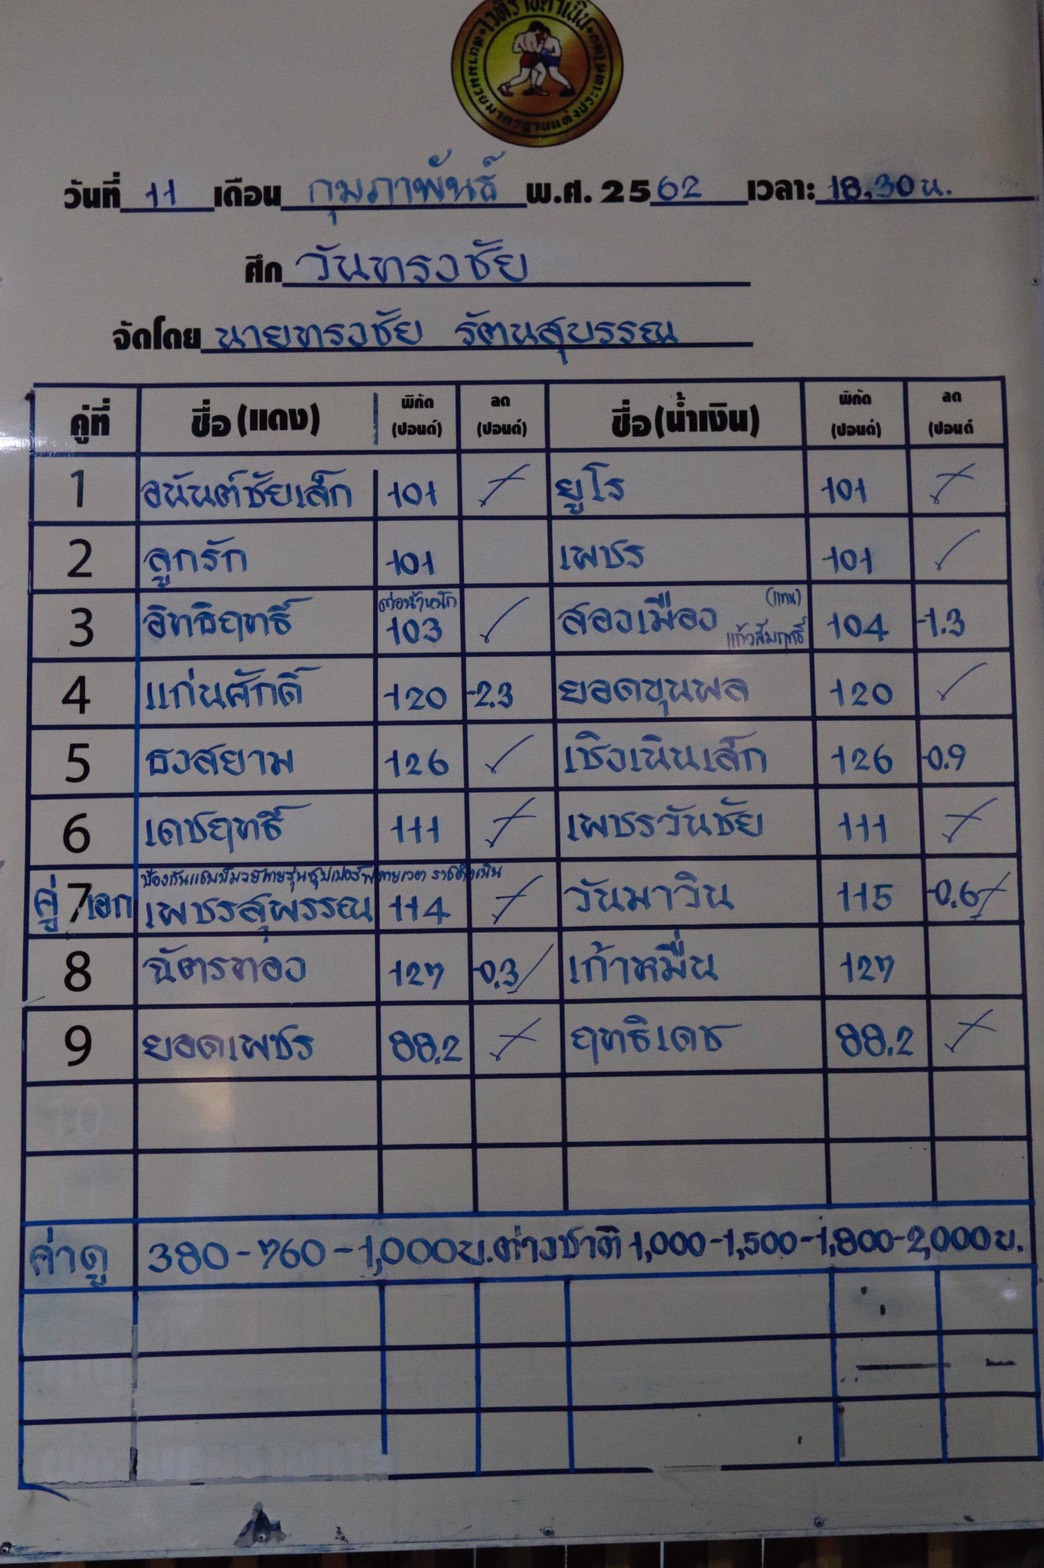 วันที่ 11 เดือน กุมภาพันธ์ พ.ศ. 2562 เวลา: 18.30 น.
ศึก วันทรงชัย
จัดโดย นายทรงชัย รัตนสุบรรณ
คู่ที่ ชื่อ (แดง) พิกัด (ปอนด์) ลด (ปอนด์) ชื่อ (น้ำเงิน) พิกัด (ปอนด์) ลด (ปอนด์
1 อนันต์ชัยเล็ก 101 ยูโร 101
2 ลูกรัก 101 เพชร 101 ✓
3 อิทธิฤทธิ์ ต่อน้ำหนัก 103 ✓ สองเมือง (แทน) แก้วสัมฤทธิ์ 104 -1.3
4 แก่นศักดิ์ 120 -2.3 ยอดขุนพล 120 ✓
5 ธงสยาม 126 ✓ เชิงเนินเล็ก 126 -0.9
6 เดชฤทธิ์ 111 เพชรวันชัย 111
ป้องกันแชมป์มวยไทยรุ่นซุปเปอร์ฟลายเวตา ราชดำเนิน
คู่ 7 เอก เพชรสุพรรณ 114 วันมาวิน 115 -0.6
8 ฉัตรทอง 127 -0.3 เก้าหมื่น 127
9 ยอดเพชร 88.2 ฤทธิเดช 88.2
ค่าดู 380-760-1,000บ. ต่างชาติ 1,000-1,500-1,800-2,000 บ.